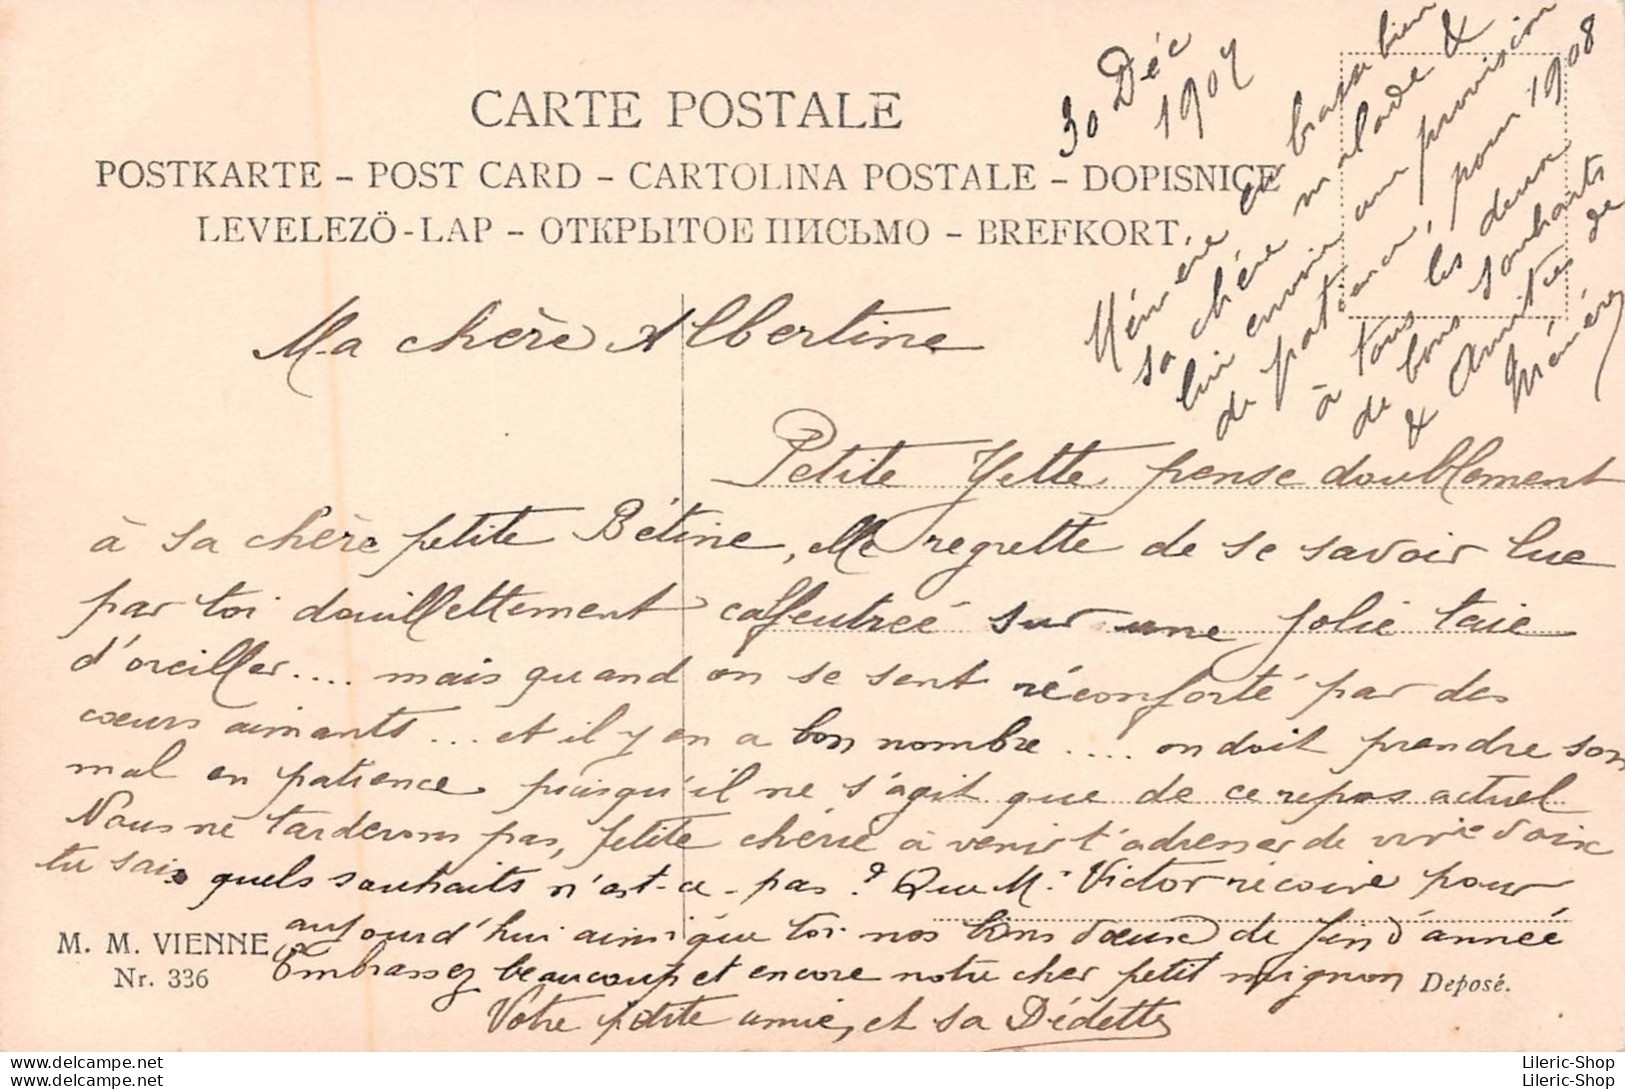 30 Déc
1907
CARTE POSTALE
POSTKARTE – POST CARD – CARTOLINA POSTALE – DOPISNICE
LEVELEZÖ-LAP – ОТКРЫТОЕ ПИСЬМО – BREFKORT.
Mémère embrasse bien
sa chère malade &
lui envoie une provision
de patience, pour 1908
à tous les deux
de bons souhaits
& Amitiés de
Mémère
Ma chère Albertine
Petite Yette pense doublement
à sa chère petite Bétine, elle regrette de se savoir lue
par toi douillettement calfeutrée sur une jolie taie
d'oreiller.... mais quand on se sent réconforté par des
cœurs aimants... et il y en a bon nombre.... on doit prendre son
mal en patience puisqu'il ne s'agit que de ce repos actuel
Nous ne tarderons pas, petite chérie à venir t'adresser de vive voix
tu sais quels souhaits n'est-ce-pas? Que Mr Victor reçoive pour
aujourd'hui ainsi que toi nos bons vœux de fin d'année
Embrassez beaucoup et encore notre cher petit mignon
Votre petite amie, et sa Dédette
M. M. VIENNE
Nr. 336
Deposé.
Lileric-Shop
Lileric-Shop
www.delcampe.net
www.delcampe.net